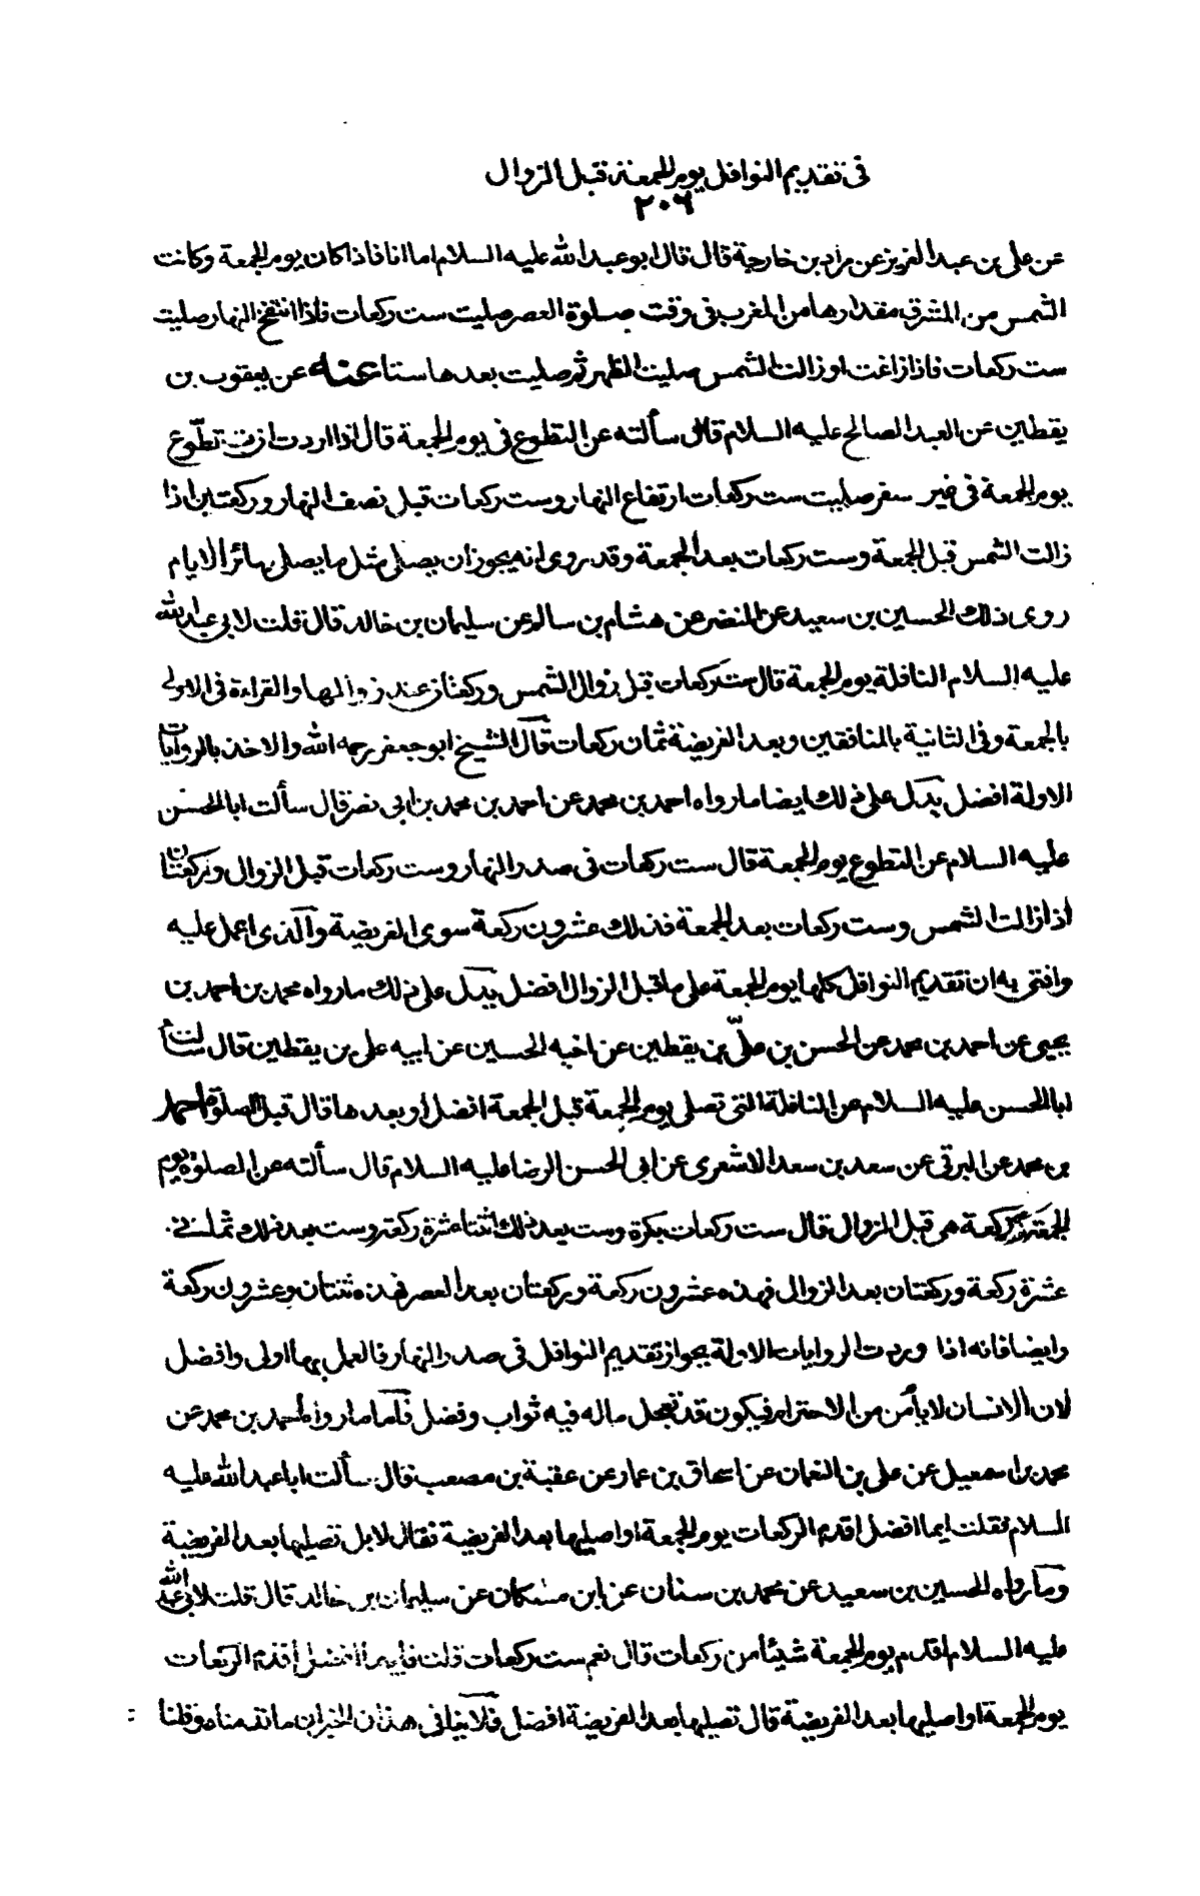 فى تقديم النوافل يوم الجمعة قبل الزوال
٢٠٦
عن على بن عبد العزيز عن مراد بن خارجة قال قال ابو عبد الله عليه السلام اما انا فاذا كان يوم الجمعة وكانت
الشمس من المشرق مقدارها من المغرب فى وقت صلوة العصر صليت ست ركعات فاذا انتفخ النهار صليت
ست ركعات فاذا زاغت او زالت الشمس صليت الظهر ثم صليت بعدها ستا عنه عن يعقوب بن
يقطين عن العبد الصالح عليه السلام قال سألته عن التطوع فى يوم الجمعة قال اذا اردت ان تطوّع
يوم الجمعة فى غير سفر صليت ست ركعات ارتفاع النهار وست ركعات قبل نصف النهار وركعتين اذا
زالت الشمس قبل الجمعة وست ركعات بعد الجمعة وقد روى انه يجوز ان يصلى مثل ما يصلى سائر الايام
روى ذلك الحسين بن سعيد عن النضر عن هشام بن سالم عن سليمان بن خالد قال قلت لابى عبد الله
عليه السلام النافلة يوم الجمعة قال ست ركعات قبل زوال الشمس وركعتان عند زوالها والقراءة فى الاولى
بالجمعة وفى الثانية بالمنافقين وبعد الفريضة ثمان ركعات قال الشيخ ابو جعفر رحمه الله والاخذ بالروايات
الاولة افضل يدل على ذلك ايضا ما رواه احمد بن محمد عن احمد بن محمد بن ابى نصر قال سألت ابا الحسن
عليه السلام عن التطوع يوم الجمعة قال ست ركعات فى صدر النهار وست ركعات قبل الزوال وركعتان
اذا زالت الشمس وست ركعات بعد الجمعة فذلك عشرون ركعة سوى الفريضة والذى اعمل عليه
وافتى به ان تقديم النوافل كلها يوم الجمعة على ما قبل الزوال افضل يدل على ذلك ما رواه محمد بن احمد بن
يحيى عن احمد بن محمد عن الحسن بن علىّ بن يقطين عن اخيه الحسين عن ابيه على بن يقطين قال سألت
ابا الحسن عليه السلام عن النافلة التى تصلى يوم الجمعة قبل الجمعة افضل او بعدها قال قبل الصلوة احمد
بن محمد عن البرقى عن سعد بن سعد الاشعرى عن ابى الحسن الرضا عليه السلام قال سألته عن الصلوة يوم
الجمعة كم ركعة هى قبل الزوال قال ست ركعات بكرة وست بعد ذلك اثنتا عشرة ركعة وست بعد ذلك ثمانى
عشرة ركعة وركعتان بعد الزوال فهذه عشرون ركعة وركعتان بعد العصر فهذه ثنتان وعشرون ركعة
وايضا فانه اذا وردت الروايات الاولة بجواز تقديم النوافل فى صدر النهار فالعمل بها اولى وافضل
لان الانسان لا يأمن من الاخترام فيكون قد تعجل ماله فيه ثواب وفضل فاما ما رواه احمد بن محمد عن
محمد بن اسمعيل عن على بن النعمان عن اسحاق بن عمار عن عقبة بن مصعب قال سألت ابا عبد الله عليه
السلام فقلت ايما افضل اقدم الركعات يوم الجمعة او اصليها بعد الفريضة فقال لا بل تصليها بعد الفريضة
وما رواه الحسين بن سعيد عن محمد بن سنان عن ابن مسكان عن سليمان بن خالد قال قلت لابى عبد الله
عليه السلام اقدم يوم الجمعة شيئا من ركعات قال نعم ست ركعات قلت فايهما افضل اقدم الركعات
يوم الجمعة او اصليها بعد الفريضة قال تصليها بعد الفريضة افضل فلا ينافى هذان الخبران ما قدمناه وقلنا